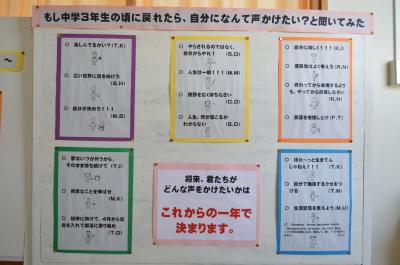 もし中学3年生の頃に戻れたら、自分になんて声かけたい?と聞いてみた
○ 楽しんでるかい?(T,K)
○ 広い世界に目を向けろ
(S,H)
○ 自分が決めろ!!!
(M,S)
○ やらされるのではなく、
自分からやれ! (S,O)
○ 人生は一度!!!(M,M)
○ 視野を広く持ちなさい
(C,O)
○ 人生、何が起こるか
わからない (S,O)
○ 自分に厳しく!!!(K,I)
○ 進路先はよく考えろ(R,N)
○ 思わってから後悔するより
も、やってから反省しなさい
(K,N)
○ 英語を勉強しとけ(F,T)
○ 夢はいつか叶うから、
そのまま持ち続けて (Y,J)
○ 得意なことを伸ばせ
(M,K)
○ 総体に向けて、4月から気
合を入れて部活に取り組め
(T,O)
将来、君たちが
どんな声をかけたいかは
これからの一年で
決まります。
○ ぼけ～っと生きてん
じゃねぇ!!! (T,K)
○ 自分で勉強するクセをつけ
る (T,M)
○ 生活習慣を整えよう(M,U)